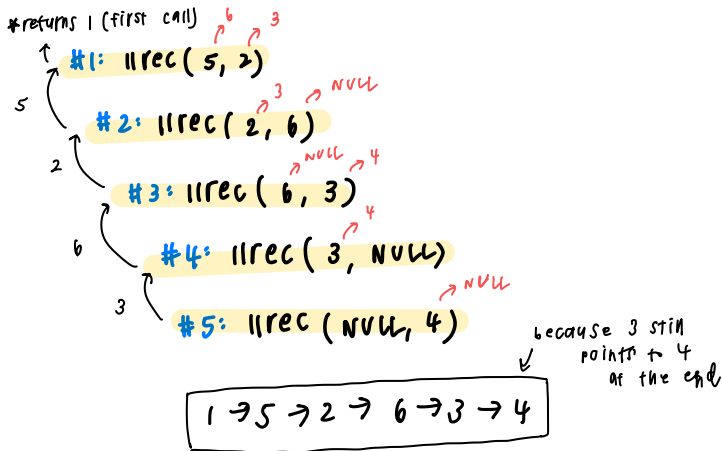 *returns 1 (first call)
6 3
#1: llrec( 5, 2)
5
3 NULL
#2: llrec( 2, 6)
2
NULL 4
#3: llrec( 6, 3)
6
4
#4: llrec( 3, NULL)
3
NULL
#5: llrec( NULL, 4)
because 3 still
points to 4
at the end
1 → 5 → 2 → 6 → 3 → 4